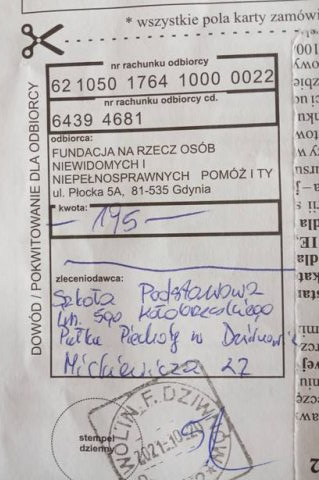 * wszystkie pola karty zamówi
nr rachunku odbiorcy
62 1050 1764 1000 0022
nr rachunku odbiorcy cd.
6439 4681
odbiorca:
FUNDACJA NA RZECZ OSÓB
NIEWIDOMYCH I
NIEPEŁNOSPRAWNYCH POMÓŻ I TY
ul. Płocka 5A, 81-535 Gdynia
kwota:
- 195 -
zleceniodawca:
Szkoła Podstawowa
im. 5go Kołobrzeskiego
Pułku Piechoty w Dziwnowie
Mickiewicza 22
stempel
dzienny
WOLIN F. DZIWNÓW
2021-10-20
DOWÓD / POKWITOWANIE DLA ODBIORCY